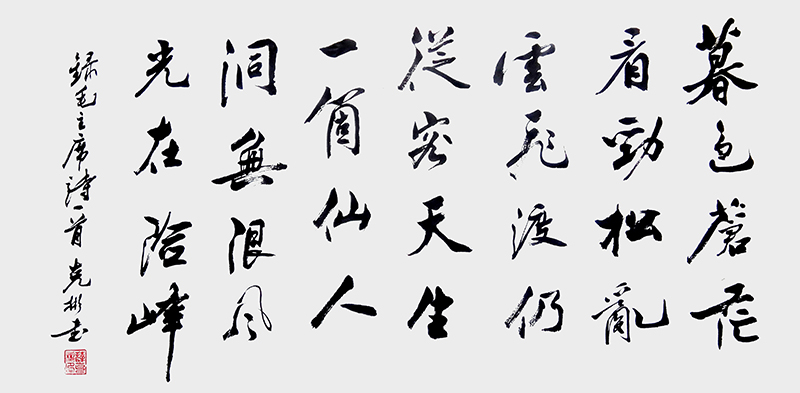 暮色蒼茫
看勁松亂
雲飛渡仍
從容天生
一箇仙人
洞無限風
光在險峰
錄毛主席詩一首 克彬書